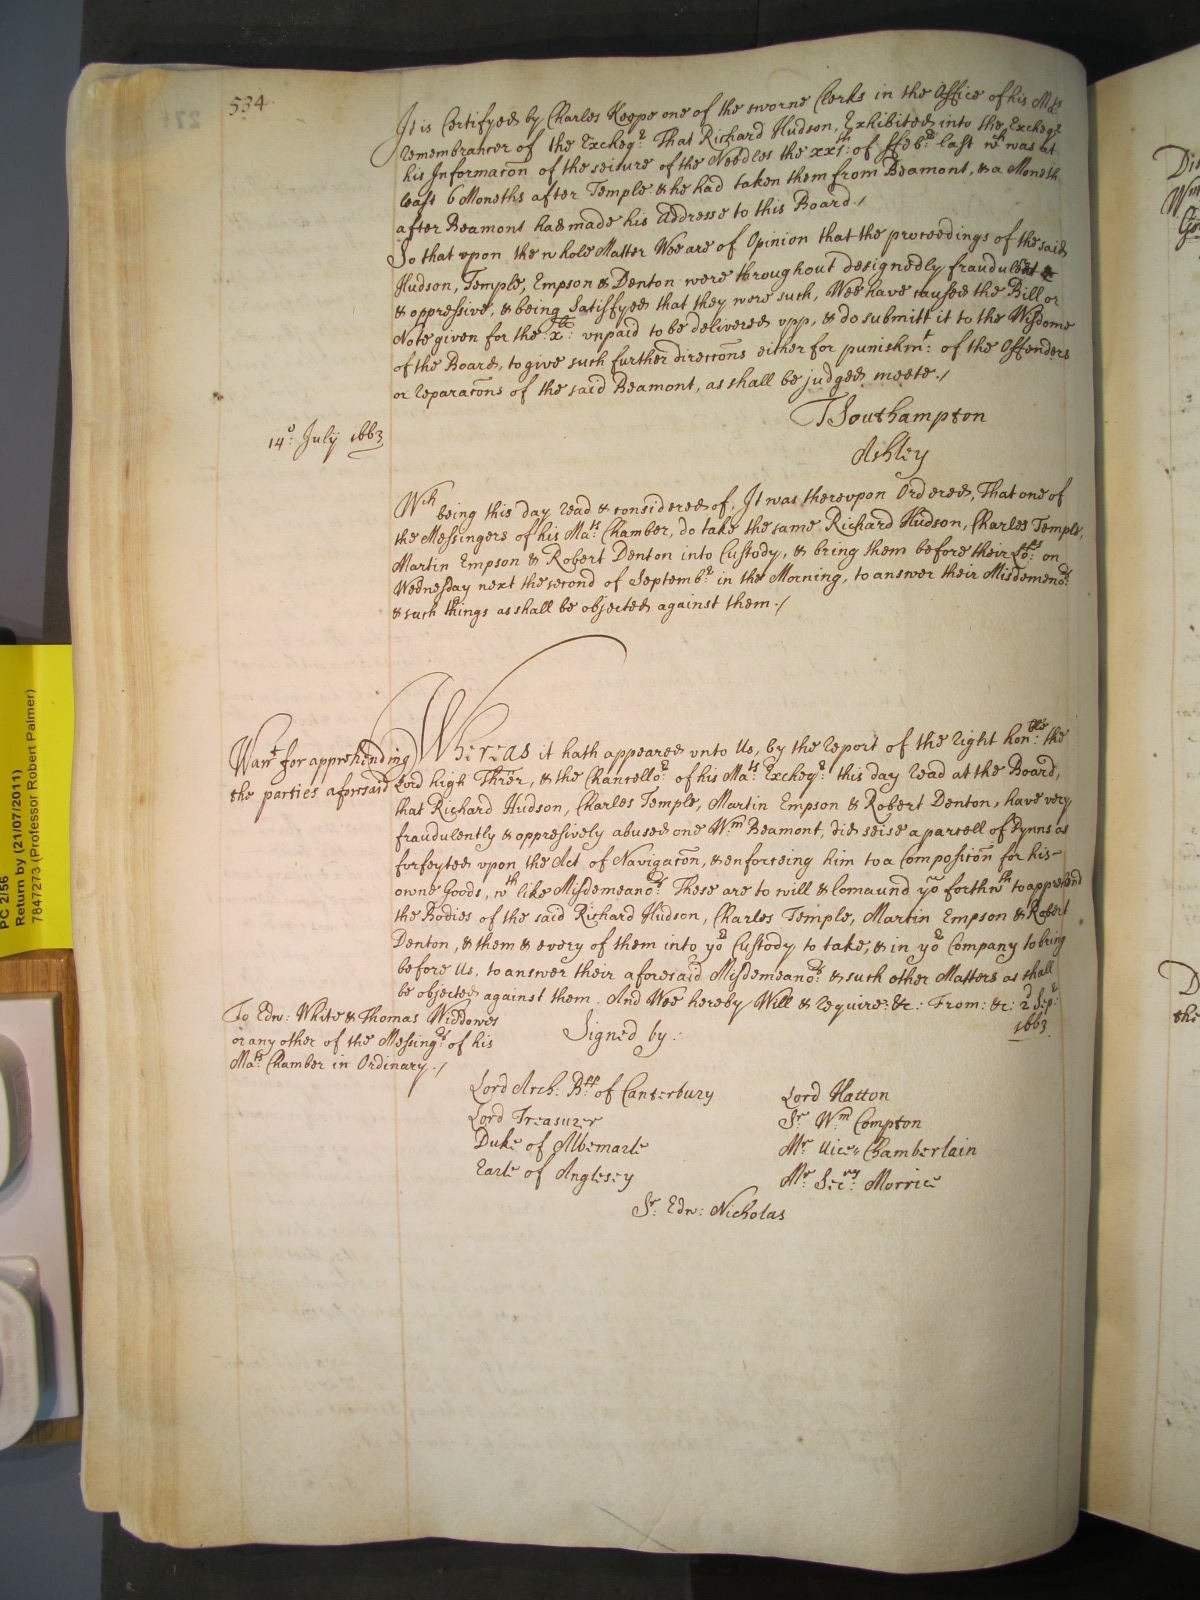 534
It is Certifyed by Charles Keepe one of the sworne Clerks in the Office of his Mats
remembrancer of the Excheqr. That Richard Hudson, Exhibited into the Excheqr
his Informacon of the seisure of the Needles the xxjth: of ffebr last wch was at
least 6 Moneths after Temple & he had taken them from Beamont, & a Moneth
after Beamont had made his Addresse to this Board./
So that vpon the whole Matter Wee are of Opinion that the proceedings of the said
Hudson, Temple, Empson & Denton were throughout designedly fraudulent
& oppressive, & being Satisfyed that they were such, Wee have caused the Bill or
Note given for the xli: vnpaid to be delivered vpp, & do submitt it to the Wisdome
of the Board, to give such further direccons either for punishmt: of the Offenders
or reparacons of the said Beamont, as shall be judged meete./
T Southampton
Ashley
14o: July 1663
Wch being this day read & considered of, It was therevpon Ordered, That one of
the Messingers of his Mats Chamber, do take the same Richard Hudson, Charles Temple,
Martin Empson & Robert Denton into Custody, & bring them before their Lops: on
Wednesday next the second of Septembr in the Morning, to answer their Misdemenors
& such things as shall be objected against them./
Warrt for apprehending
the parties aforesaid
Whereas it hath appeared vnto Us, by the report of the right honble the
Lord high Threr, & the Chancellor of his Mats Excheqr this day read at the Board,
that Richard Hudson, Charles Temple, Martin Empson & Robert Denton, have very
fraudulently & oppresively abused one Wm Beamont, did seise a parcell of Pynns as
forfeyted vpon the Act of Navigacon, & enforceing him to a Composicon for his
owne Goods, wth like Misdemeanors These are to will & Comaund yo forthwth to apprehend
the Bodies of the said Richard Hudson, Charles Temple, Martin Empson & Robert
Denton, & them & every of them into yor Custody to take, & in yor Company to bring
before Us, to answer their aforesaid Misdemeanors & such other Matters as shall
be objected against them. And Wee hereby Will & require: &c: From: &c: 2d Sepr:
1663.
To Edw: White & Thomas Widdowes
or any other of the Messingrs of his
Mats Chamber in Ordinary./
Signed by:
Lord Arch: Bpp of Canterbury
Lord Treasurer
Duke of Albemarle
Earle of Anglesey
Lord Hatton
Sr Wm Compton
Mr Vice-Chamberlain
Mr Secry: Morrice
Sr: Edw: Nicholas
PC 2/56
Return by (21/07/2011)
7847273 (Professor Robert Palmer)